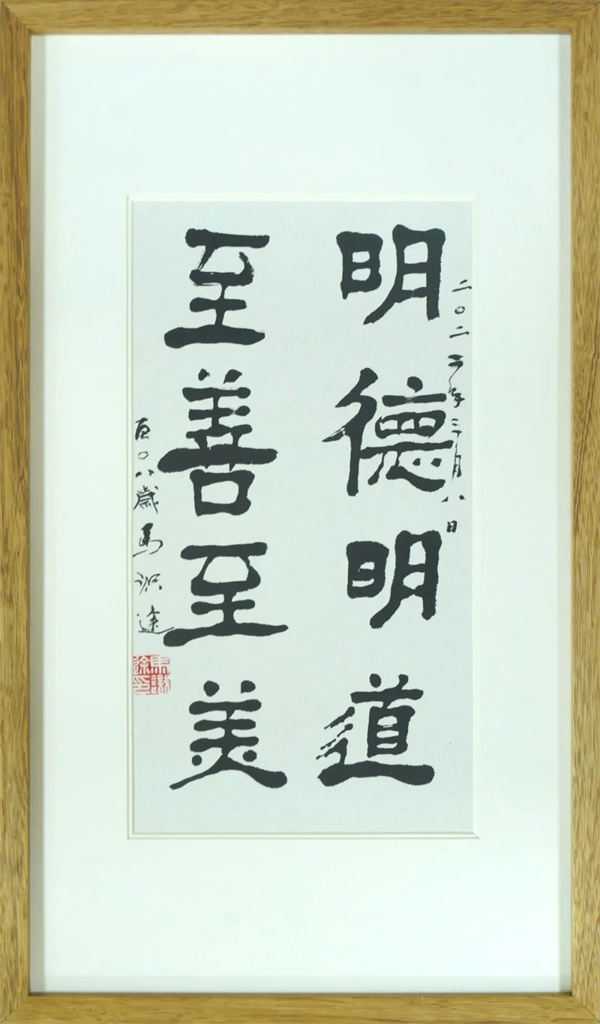 二〇二二年三月八日
明德明道
至善至美
百〇八歲馬识途
馬識途印